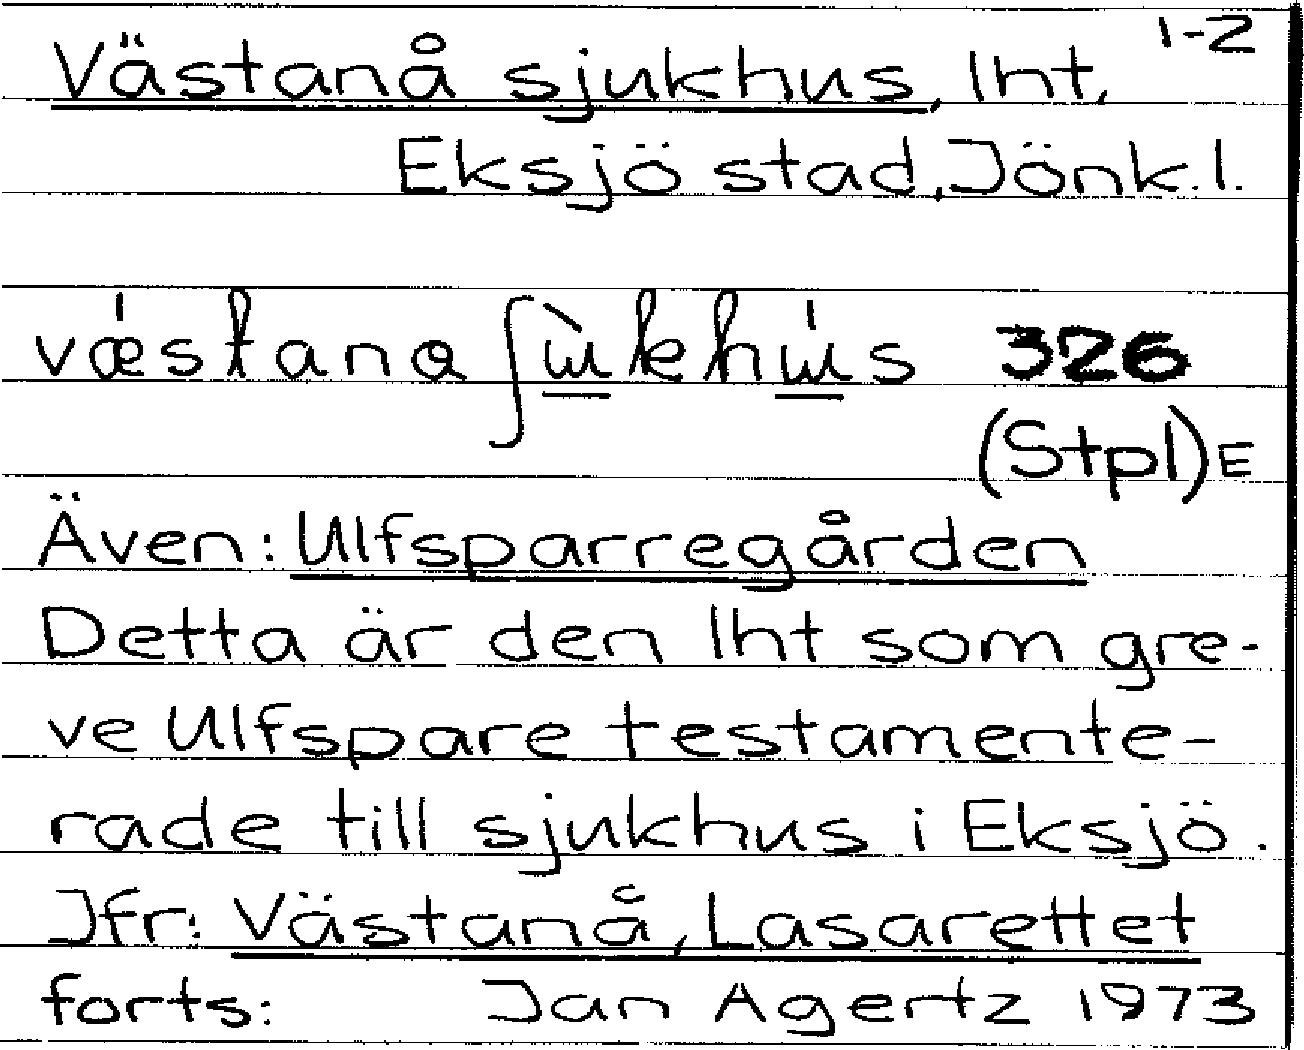 1-2
Västanå sjukhus, lht,
Eksjö stad, Jönk.l.
væ̍stana ʃɯ̀khɯ̍s 326
(Stpl)E
Även: Ulfsparregården
Detta är den lht som gre-
ve Ulfspare testamente-
rade till sjukhus i Eksjö.
Jfr: Västanå, Lasarettet
forts: Jan Agertz 1973